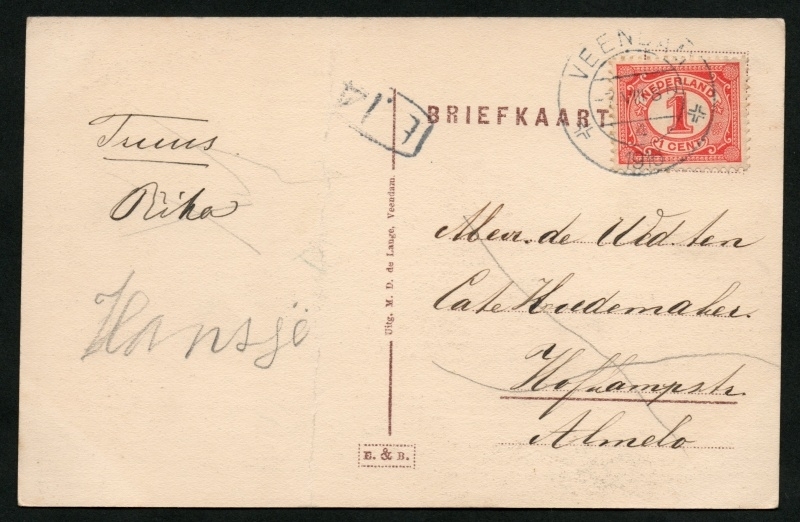 Truus.
Rika
Hansje
E.14
Uitg. M. D. de Lange, Veendam.
E. & B.
BRIEFKAART
VEENDAM
NEDERLAND
1
1 CENT
Mevr. de Wed. ten
Cate Hudemaker.
Hofkampstr.
Almelo